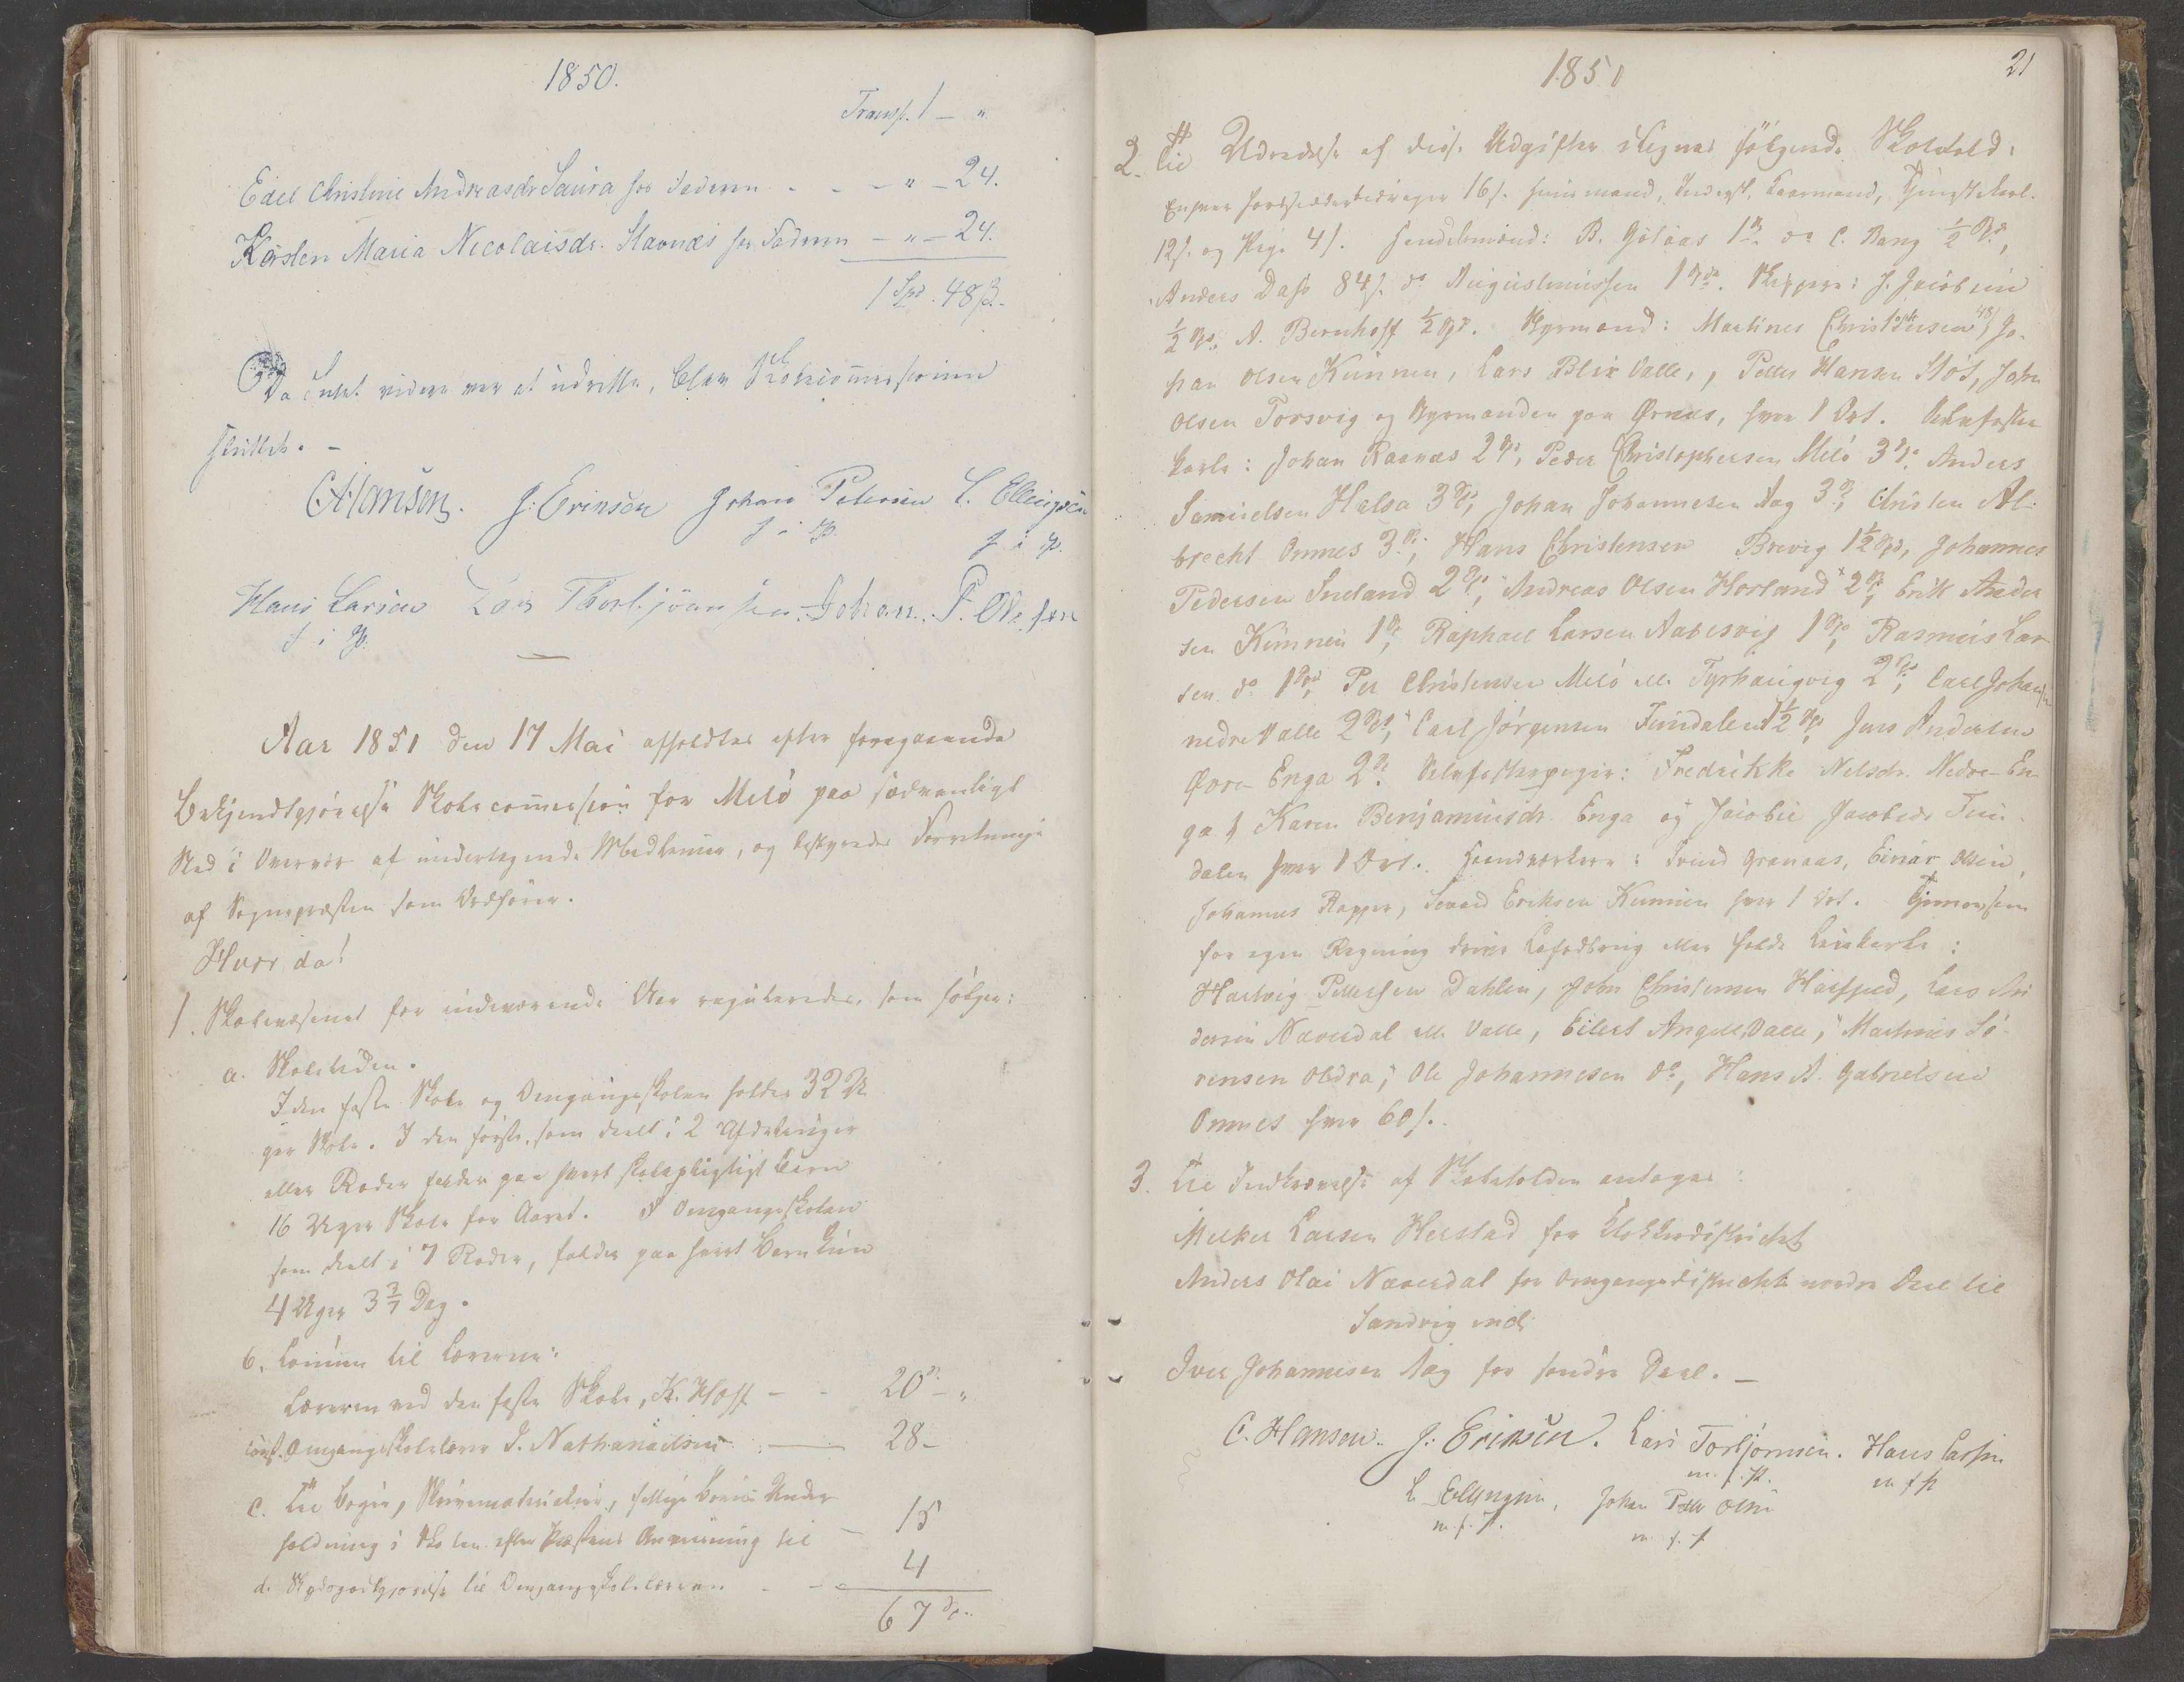 1850.
Transp. 1 – "
Edel Christine Andreasdr Saura for Faderen - - - " - 24.
Kirsten Maria Nicolaisdr. Stavnæs for Faderen - " - 24.
1 Spd. 48 ß.
Da Intet videre var at udrette, blev Skolecommissionen
sluttet. –
C Hansen. J. Erinsen Johan Petersen L. Ellingsen
Hans Larsen Lars Thorbjörnsen. Johan P. Olesen
Aar 1851 den 17 Mai afholdtes efter foregaaende
Bekjendtgjørelse Skolecommission for Melö paa sædvanligt
Sted i Overvær af undertegnede Medlemmer, og bestyredes Forretningen
af Sognepræsten som Ordförer.
Hvor da!
1. Skolevæsenet for indeværende Aar reguleredes som følger:
a. Skoletiden.
I den faste Skole og Omgangsskolen holdes 32 U
ger Skole. I den første, som deelt i 2 Afdelinger
eller Roder falder paa hvert skolepligtigt Barn
16 Uger Skole for Aaret. I Omgangsskolen
som deelt i 7 Roder, falder paa hvert Barn kun
4 Uger 3 3/7 Dag.
b. Lønnen til Lærerne:
Læreren ved den faste Skole, K. Hoff - - 20 - "
const. Omgangsskolelærer I. Nathanaelsen - 28 -
c. Til Bøger, Skrivematerialier, fattige Børns Under-
holdning i Skolen efter Præstens Anviisning til - 15
d. Skydsgodtgjørelse til Omgangsskolelæreren - - 4
67
1851
21
2. Til Udredelse af disse Udgifter lignes følgende Skoletold:
Enhver Jordbruger bidrager 16 s. Huusmand, Inderst, Kaarmand, Tjenestekarl
12 s. og Pige 4 s. Handelsmænd: B. Gilaas 1 do C. Bang 1/2
Anders Dass 84 s. do Augustinussen 1 Skippere: J. Jacobsen
1/2 A. Bernhoff 1/2 Styrmænd: Martines Christophersen Jo-
han Olsen Kunnen, Lars Blix Valle, Petter Hansen Stöt, John
Olsen Torsvig og Styrmanden paa Ørnes, hver 1 Ort. Selvfostre
karle: Johan Raanæs 2, Peder Christophersen Melö 3 Anders
Samuelsen Halsa 3, Johan Johannesen Aag 3, Christen Al-
brecht Omnes 3, Hans Christensen Brevig 1 1/2, Johannes
Pedersen Sneland 2, Andreas Olsen Horland 2, Erik Ander
sen Kunnen 1, Raphael Larsen Aabesvig 1, Rasmus Lar
sen do 1, Per Christensen Melö ell. 2, Carl Johan
nedre Valle 2, Carl Jörgensen Fundalen 1 1/2 Jens Andersen
Øvre Enga 2. Fredrikke Nelsdr. Nedre-En-
ga Karen Benjaminsdr. Enga og Jacobsdr Fun-
dalen hver 1 Ort. Haandværkere: Svend Grønaas, Einar Olsen,
Johannes, Sevard Eriksen Kunnen hver 1 Ort. som
for egen Regning drive Lofodbrug eller holde Leiekarle:
Hartvig Pettersen Dahlen, John Christensen, Lars An
dersen Næverdal ell. Valle, Eilert Angell Valle, Martinus Sö-
rensen Oldra, Ole Johannesen do, Hans A. Gabrielsen
Omnes hver 60 s.
3. Til Indkrævelse af Skoletolden antages:
Melker Larsen Helstad for Klokkerdistrictet
Anders Olai Næverdal for Omgangsdistrictets nordre Deel til
Sandvig incl.
Iver Johannesen Aag for søndre Deel. –
C. Hansen. J. Erinsen. Lars Torbjörnsen. Hans Larsen
m. f. P. m f P
L. Ellingsen, Johan Petter Olsen
m. f. P. m. f. P